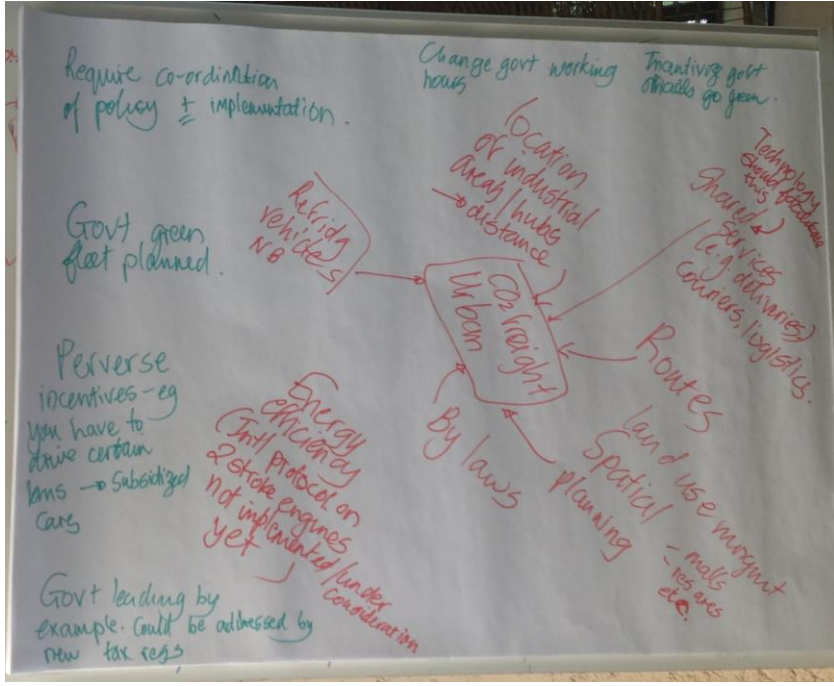 Require co-ordination
of policy + implementation.
Change govt working
hours
Incentivize govt
officials go green.
Govt green
fleet planned.
Perverse
incentives - eg
you have to
drive certain
kms → Subsidized
cars
Govt leading by
example. Could be addressed by
new tax regs
Refridg
vehicles
NB
location
or industrial
areas/hubs
→ distance
Technology
should
this
Shared
services
(e.g. deliveries)
Couriers, logistics.
CO2 freight
Urban
Routes
By laws
land use mngmt
Spatial
planning
- malls
- res ares
etc.
Energy
efficiency
(Intl protocol on
2 stroke engines
not implemented/under
consideration
yet